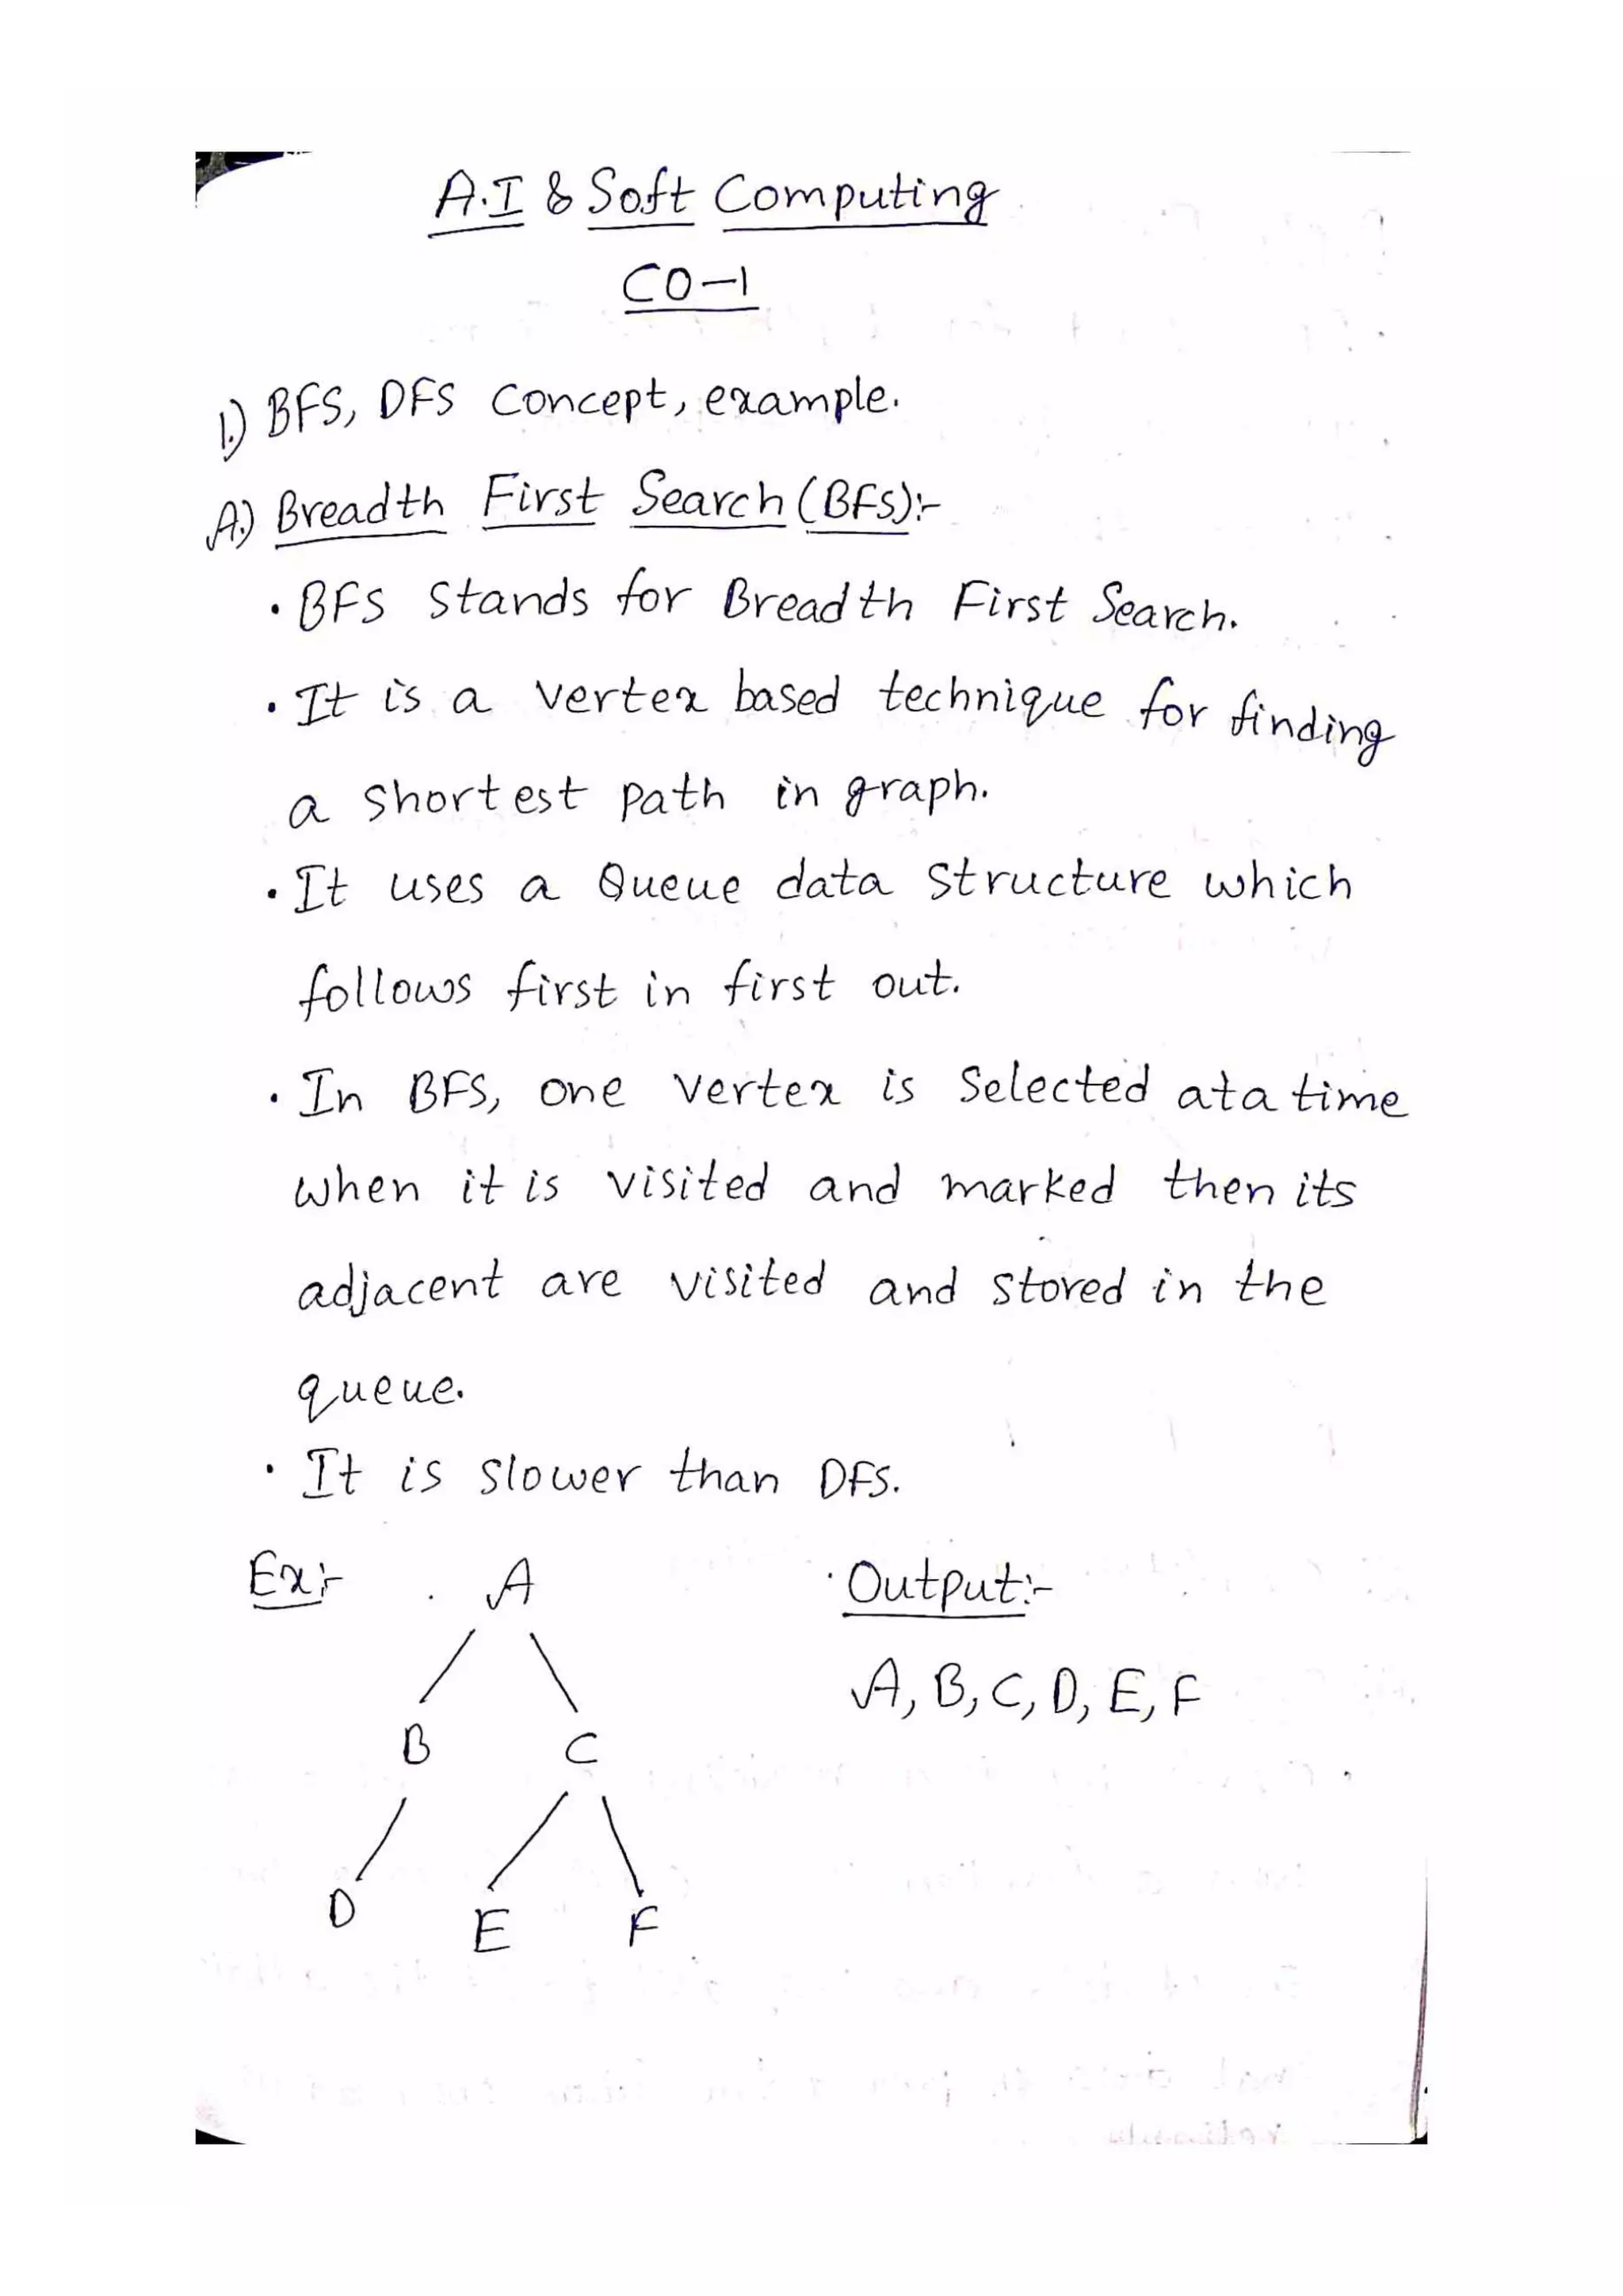 A.I & Soft Computing
CO-1
1.) BFS, DFS Concept, example.
A.) Breadth First Search (BFS):-
• BFS Stands for Breadth First Search.
• It is a vertex based technique for finding
a shortest path in graph.
• It uses a Queue data structure which
follows first in first out.
• In BFS, one vertex is Selected at a time
when it is visited and marked then its
adjacent are visited and stored in the
queue.
• It is slower than DFS.
Ex:- A Output:-
A, B, C, D, E, F
B C
D E F